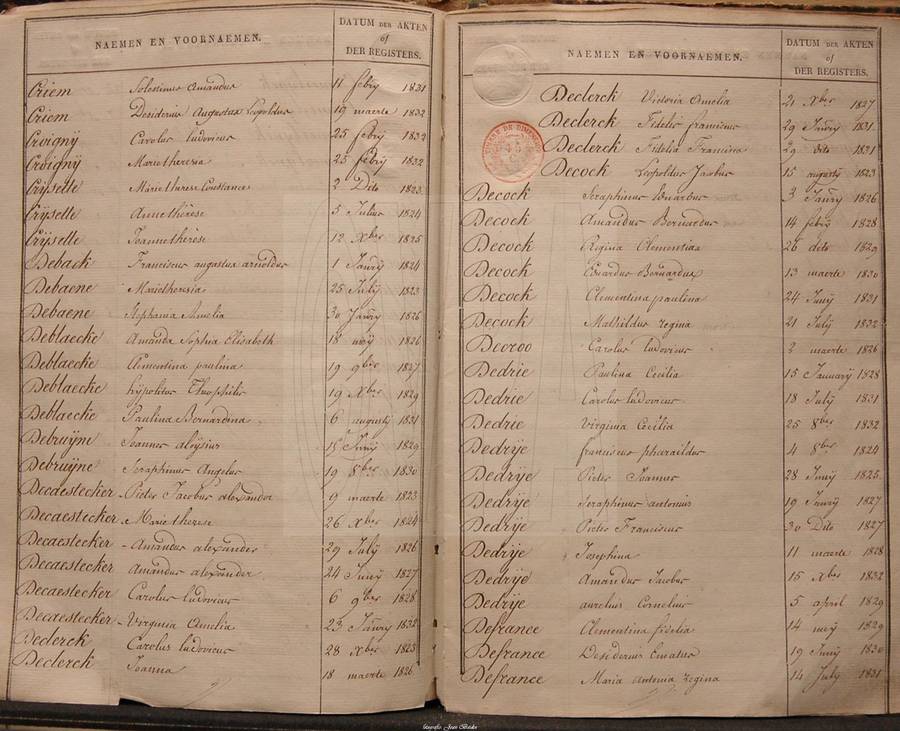 NAEMEN EN VOORNAEMEN.
DATUM DER AKTEN
of
DER REGISTERS.
Criem Amandus 11 febry 1831
Criem Desiderius Augustus Leopoldus 19 maerte 1832
Croignij Carolus ludovicus 25 febry 1832
Croignij Marie theresia 25 febry 1832
Crijsette Marie therese Constance 2 Dito 1823
Crijsette Anne thérèse 5 Julius 1824
Crijsette Joanne thérèse 12 Xber 1825
Deback Franciscus augustus arnoldus 1 Janry 1824
Debaene Marie theresia 25 July 1823
Debaene Stephania Amelia 30 Janry 1826
Deblaecke Amanda Sophia Elisabeth 18 meij 1826
Deblaecke Clementina paulina 19 9ber 1827
Deblaecke hijpolitus Theophilis 19 Xber 1829
Deblaecke Paulina Bernardina 6 augusty 1831
Debruijne Joannes aloijsius 15 Junij 1829
Debruijne Seraphinus Angelus 19 8ber 1830
Decaestecker Pieter Jacobus alexander 9 maerte 1823
Decaestecker Marie therese 26 Xber 1824
Decaestecker Amandus alexander 29 July 1826
Decaestecker Amandus alexander 24 Junij 1827
Decaestecker Carolus ludovicus 6 9ber 1828
Decaestecker Virginia Amelia 23 Janry 1832
Declerck Carolus ludovicus 28 Xber 1823
Declerck Joanna 18 maerte 1826
NAEMEN EN VOORNAEMEN.
DATUM DER AKTEN
of
DER REGISTERS.
Declerck Victoria Amelia 21 Xber 1827
Declerck Fidelis franciscus 29 Janry 1831
Declerck Fidelia Francisca 29 dito 1831
Decock Leopoldus Jacobus 15 augusty 1823
Decock Seraphinus Eduardus 3 Janry 1826
Decock Amandus Bernardus 14 febry 1828
Decock Regina Clementiaa 26 dito 1829
Decock Eduardus Bernardus 13 maerte 1830
Decock Clementina paulina 24 Junij 1831
Decock Mathildus regina 21 July 1832
Decroo Carolus ludovicus 2 maerte 1826
Dedrie Paulina Cecilia 15 January 1828
Dedrie Carolus ludovicus 18 July 1831
Dedrie Virginia Cecilia 25 8ber 1832
Dedrije franciscus pharaildus 4 8ber 1824
Dedrije Pieter Joannes 28 Junij 1825
Dedrije Seraphinus antonius 19 Janry 1827
Dedrije Pieter Franciscus 30 Dito 1827
Dedrije Josephina 11 maerte 1828
Dedrije Amandus Jacobus 15 Xber 1832
Dedrije aurelius Cornelius 5 april 1829
Defrance Clementina fidelia 14 meij 1829
Defrance Desiderius 19 Junij 1830
Defrance Maria Antonia regina 14 July 1831